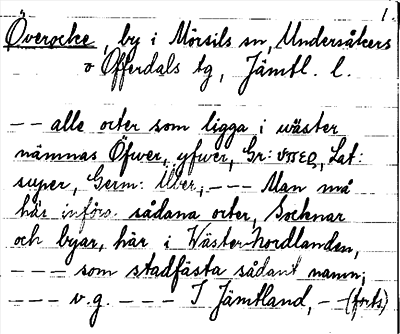 1.
Överocke, by i Mörsils sn, Undersåkers
o Offerdals tg, Jämtl. l.
-- alle orter som ligga i wäster
nämnas Öfwer, yfwer, Gr: υπερ, Lat:
super, Germ: Über, --- Man må
här införa sådana orter, Socknar
och byar, här i Väster-Nordlanden,
--- som stadfästa sådant namn;
--- v.g. --- I Jämtland, - (forts)